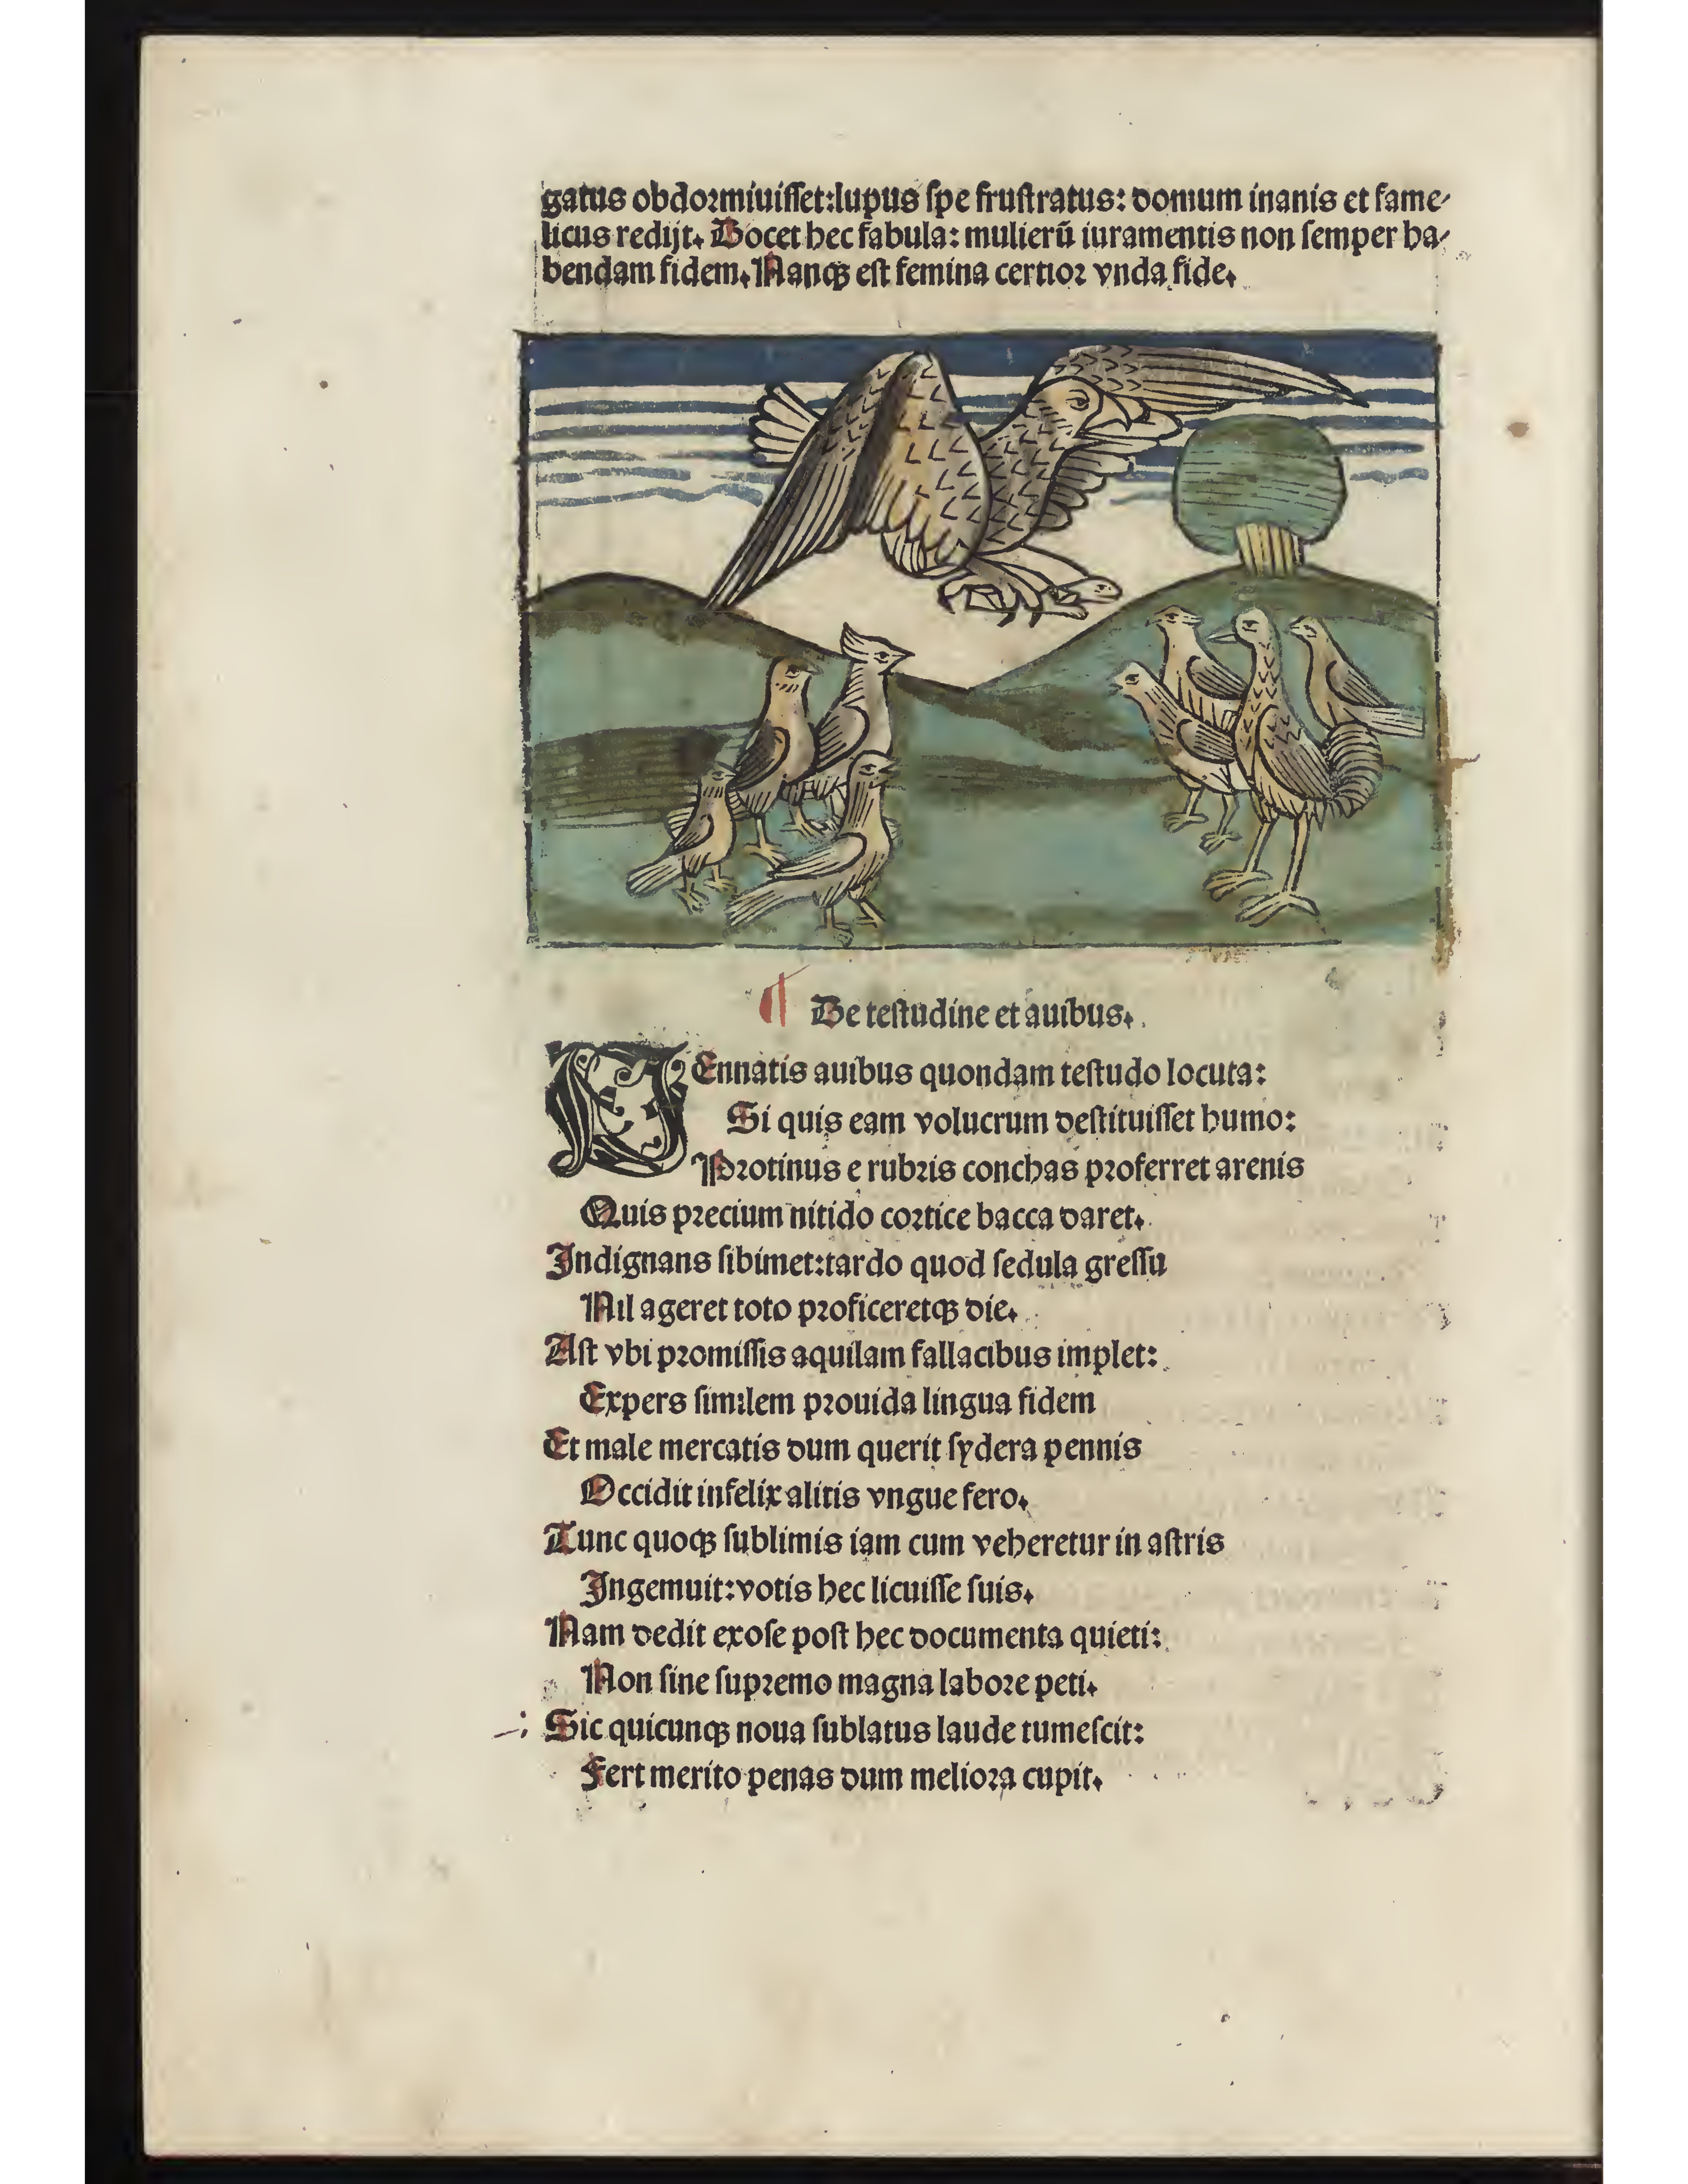 gatus obdormiuiſſet:lupus ſpe fruſtratus: domum inanis et fame⸗
licus redijt. Docet hec fabula: mulierū iuramentis non ſemper ha⸗
bendam fidem. Nanqꝫ eſt femina certior vnda fide.
¶ De teſtudine et auibus.
PEnnatis auibus quondam teſtudo locuta:
Si quis eam volucrum deſtituiſſet humo:
Protinus e rubris conchas proferret arenis
Quis precium nitido cortice bacca daret.
Indignans ſibimet:tardo quod ſedula greſſu
Nil ageret toto proficeretqꝫ die.
Aſt vbi promiſſis aquilam fallacibus implet:
Expers ſimilem prouida lingua fidem
Et male mercatis dum querit ſydera pennis
Occidit infelix alitis vngue fero.
Tunc quoqꝫ ſublimis iam cum veheretur in aſtris
Ingemuit:votis hec licuiſſe ſuis.
Nam dedit exoſe poſt hec documenta quieti:
Non ſine ſupremo magna labore peti.
Sic quicunqꝫ noua ſublatus laude tumeſcit:
Fert merito penas dum meliora cupit.